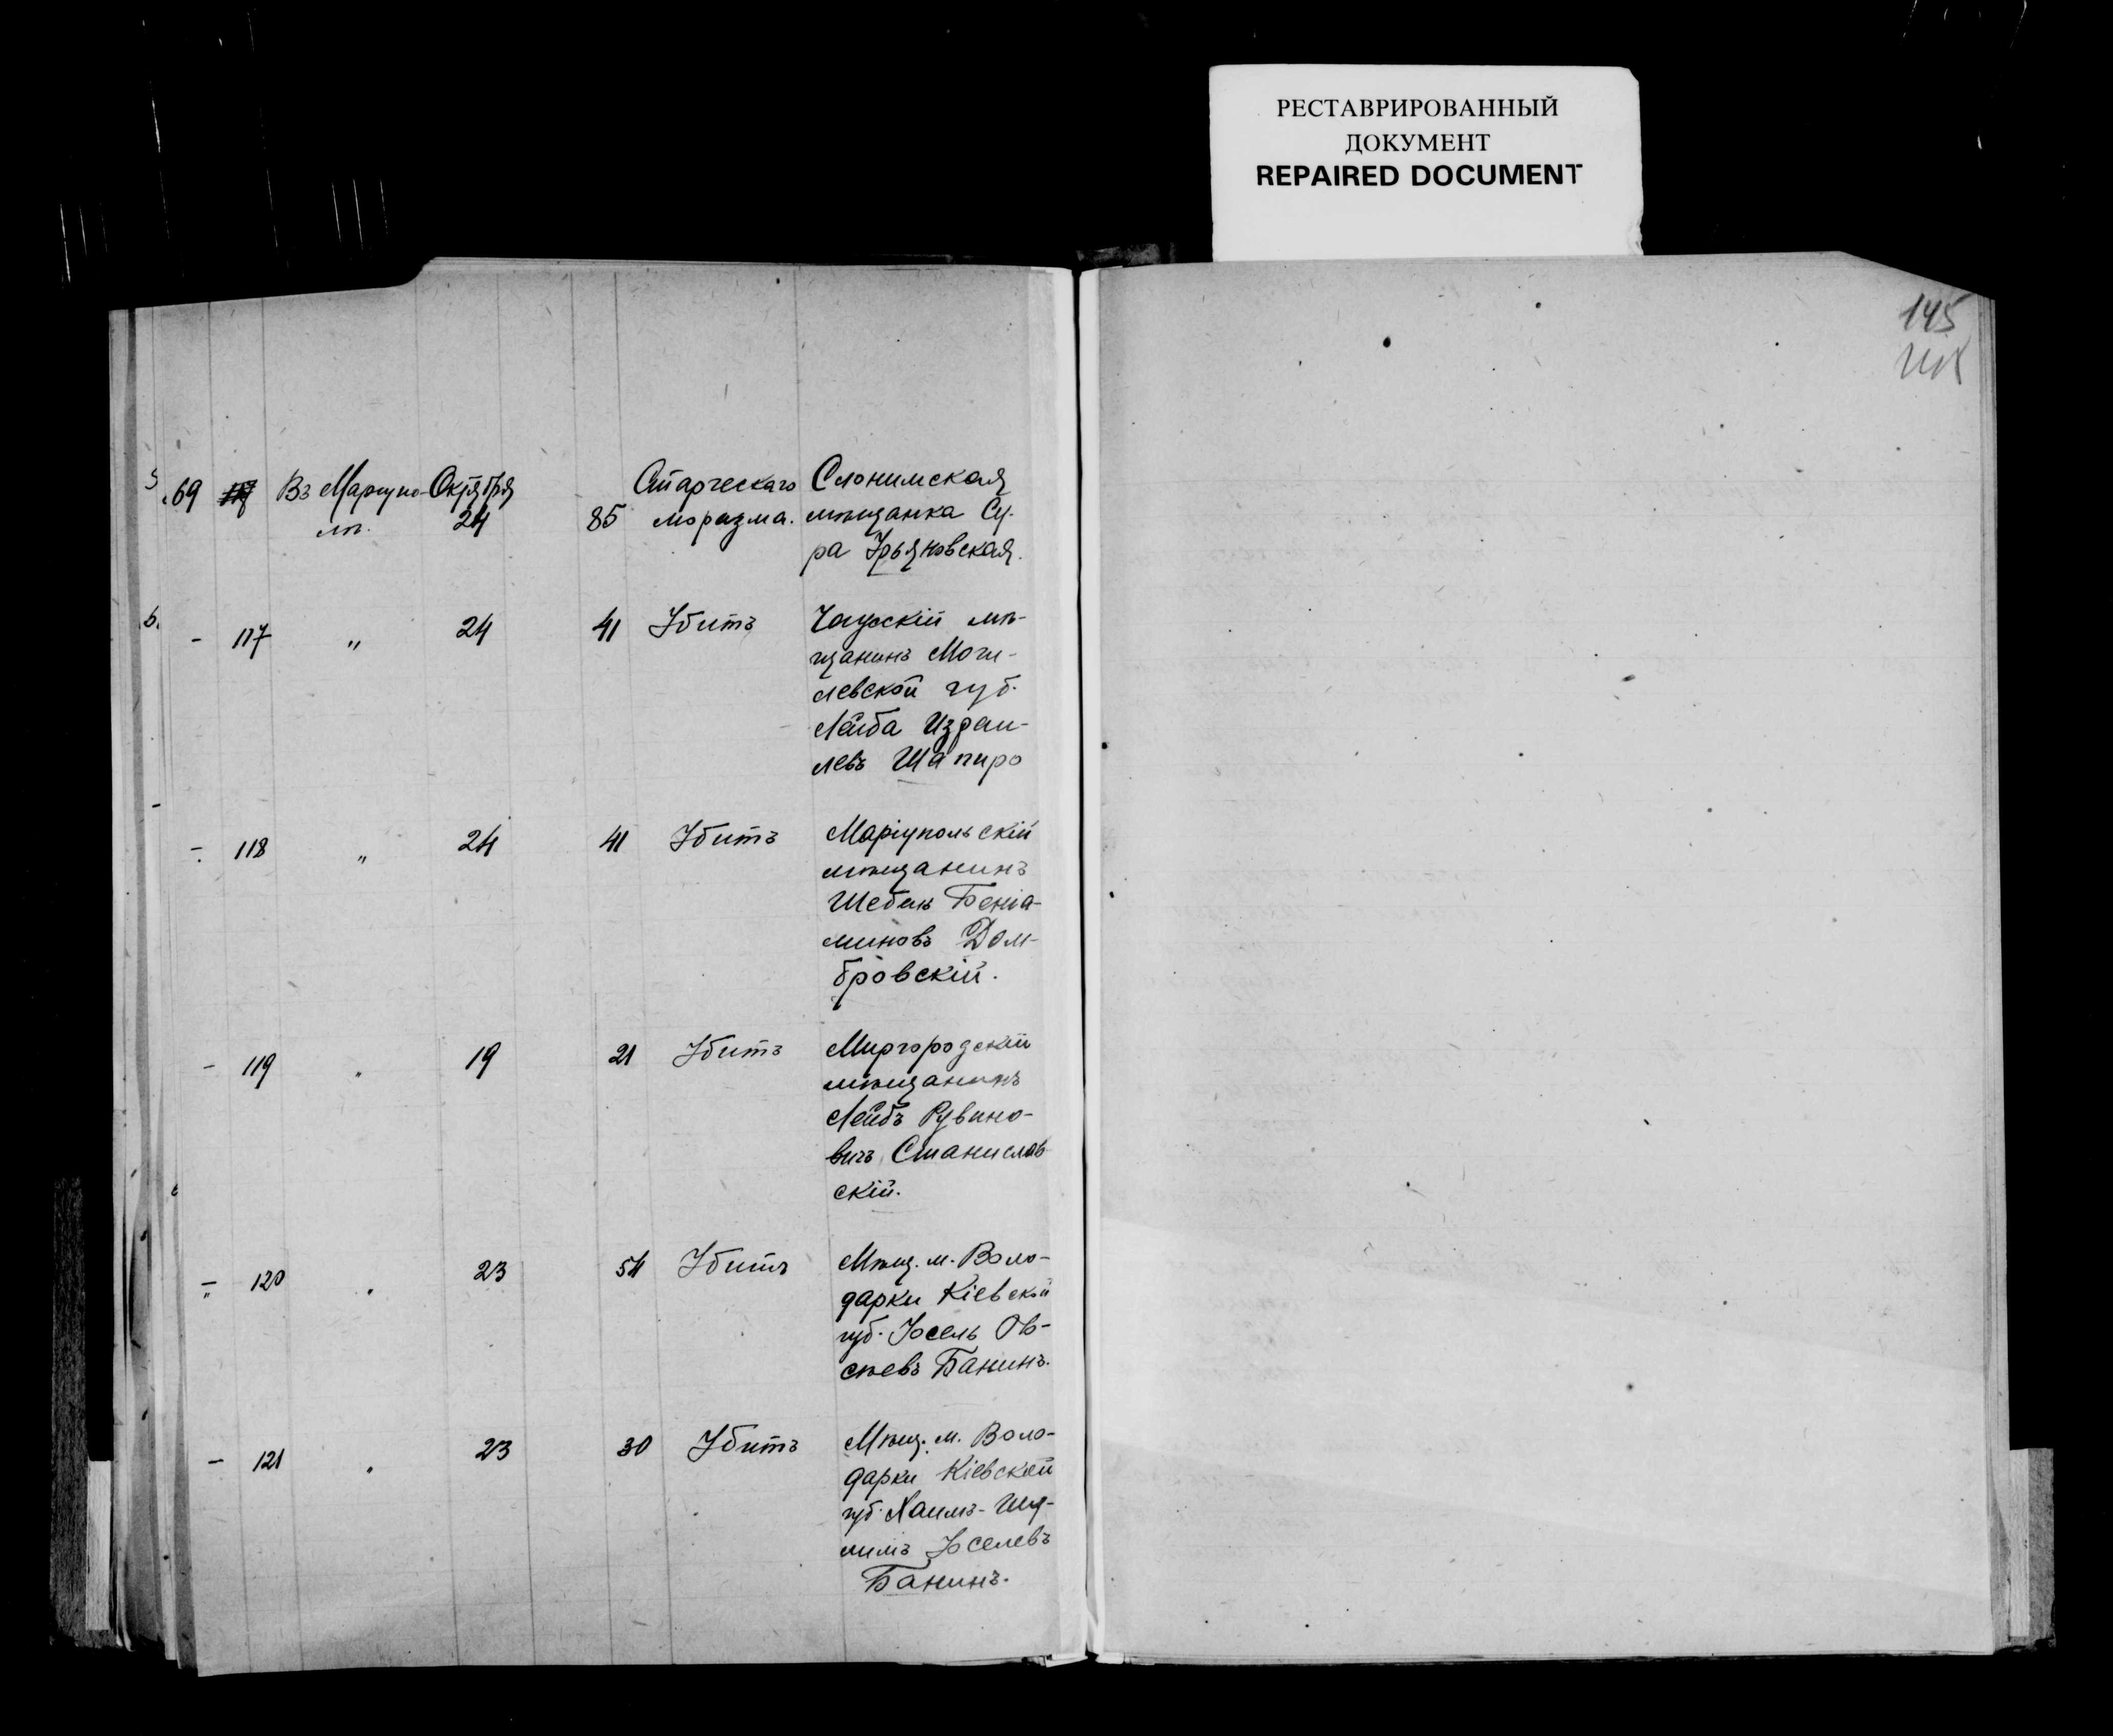 РЕСТАВРИРОВАННЫЙ
ДОКУМЕНТ
REPAIRED DOCUMENT
145
69 Въ Маріупо- Октября Старческаго Слонимская
лѣ. 24 85 моразма. мѣщанка Су-
ра Урьяновская.
- 117 " 24 41 Убитъ Чаусскій мѣ-
щанинъ Моги-
левской губ.
Лейба Израи-
левъ Шапиро
- 118 " 24 41 Убитъ Маріупольскій
мѣщанинъ
Беніа-
миновъ Дом-
бровскій.
- 119 " 19 21 Убитъ Миргородскій
мѣщанинъ
Лейбъ Рувино-
вичъ Станислав
скій.
- 120 " 23 54 Убитъ Мѣщ. м. Воло-
дарки Кіевской
губ. Іосель Ов-
сѣевъ Банинъ.
- 121 " 23 30 Убитъ Мѣщ. м. Воло-
дарки Кіевской
губ. Хаимъ-Шу-
лимъ Іоселевъ
Банинъ.